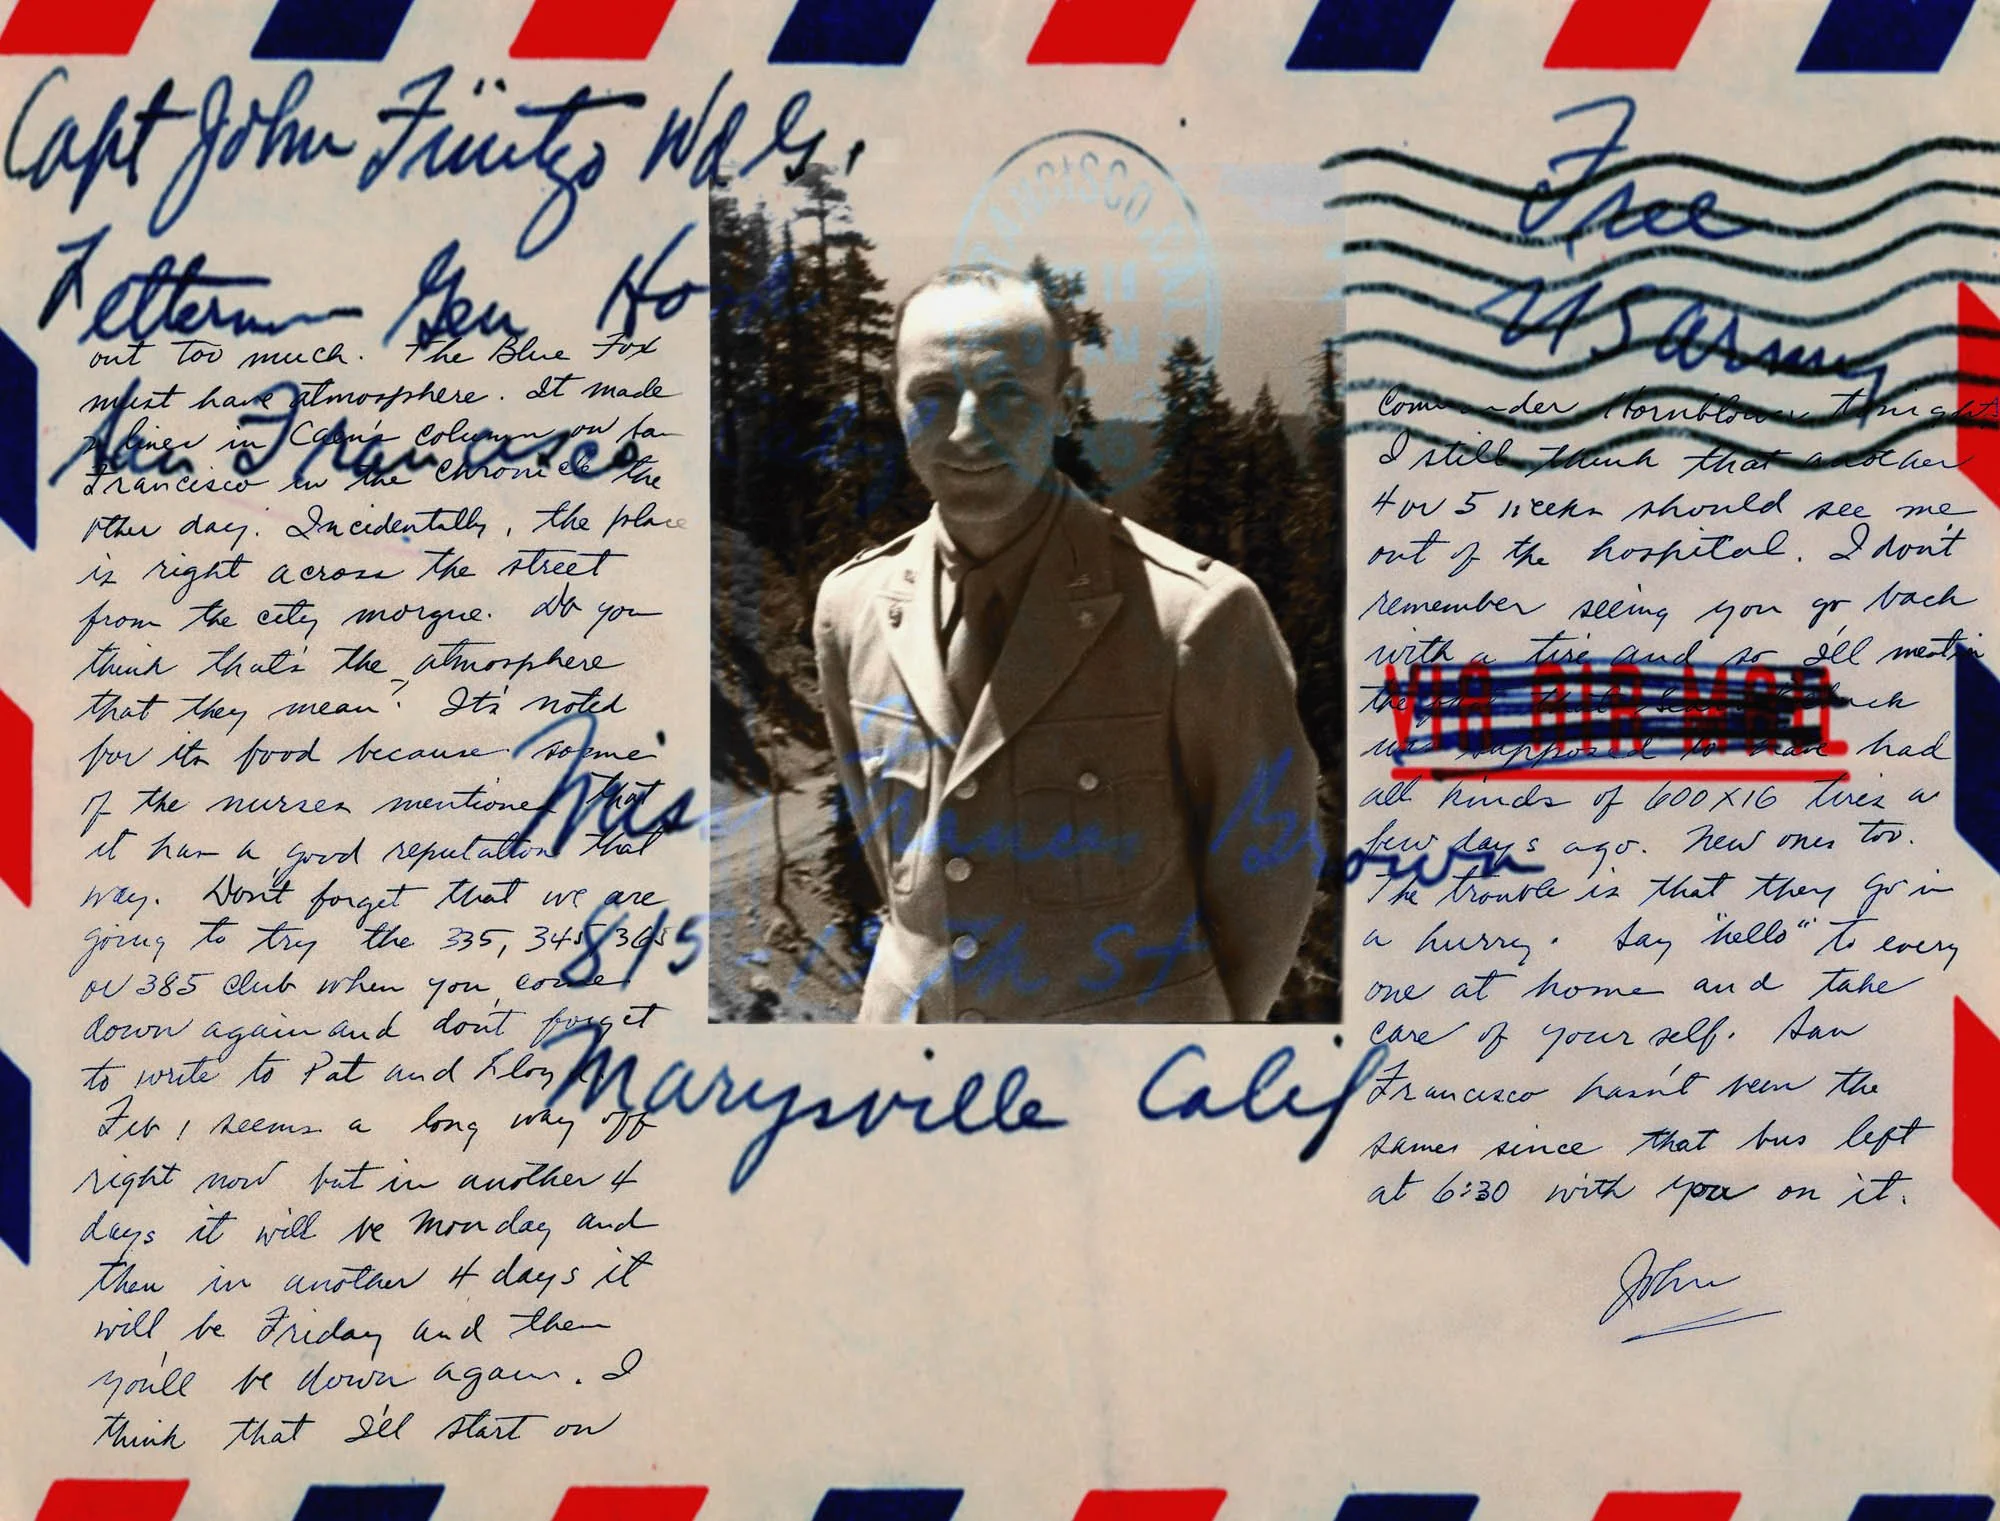 Capt John Füntzo Wd G1.
Free
Letterman Gen Ho
US Army
San Francisco
out too much. The Blue Fox
must have atmosphere. It made
a liner in Caen's column on San
Francisco in the Chronicle the
other day. Incidentally, the place
is right across the street
from the city morgue. Do you
think that's the atmosphere
that they mean? It's noted
for its food because some
of the nurses mentioned that
it has a good reputation that
way. Don't forget that we are
going to try the 335, 345, 365
or 385 club when you come
down again and don't forget
to write to Pat and
Feb 1 seems a long way off
right now but in another 4
days it will be Monday and
then in another 4 days it
will be Friday and then
you'll be down again. I
think that I'll start on
FRANCISCO, CAL
Miss Frances Brown
815 - 15th St
Marysville Calif
Commander Hornblower tonight.
I still think that another
4 or 5 weeks should see me
out of the hospital. I don't
remember seeing you go back
with a tire and so I'll mention
the that Sears
was supposed to have had
all kinds of 600X16 tires a
few days ago. New ones too.
The trouble is that they go in
a hurry. Say "hello" to every
one at home and take
care of yourself. San
Francisco hasn't been the
same since that bus left
at 6:30 with you on it.
John
VIA AIR MAIL